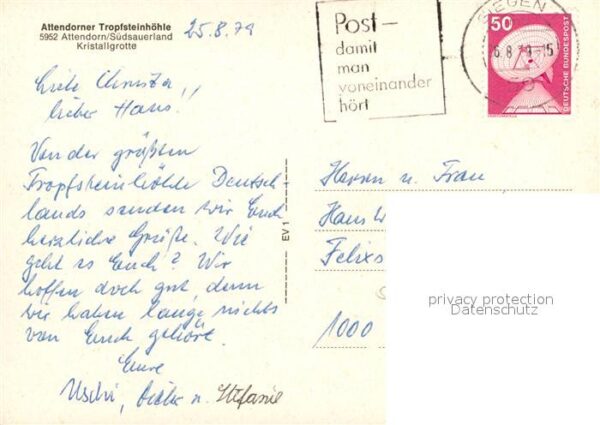 Attendorner Tropfsteinhöhle
5952 Attendorn/Südsauerland
Kristallgrotte
25.8.79
Liebe Christa,
lieber Hans!!
Von der größten
Tropfsteinhöhle Deutsch-
lands senden wir Euch
herzliche Grüße. Wie
geht es Euch? Wir
hoffen doch gut denn
wir haben lange nichts
von Euch gehört.
Eure
Uschi, u. Stefanie
EV 1
Post -
damit
man
voneinander
hört
SIEGEN
8.79-15
50
DEUTSCHE BUNDESPOST
Herrn u. Frau
Hans
Felixs
1000
privacy protection
Datenschutz